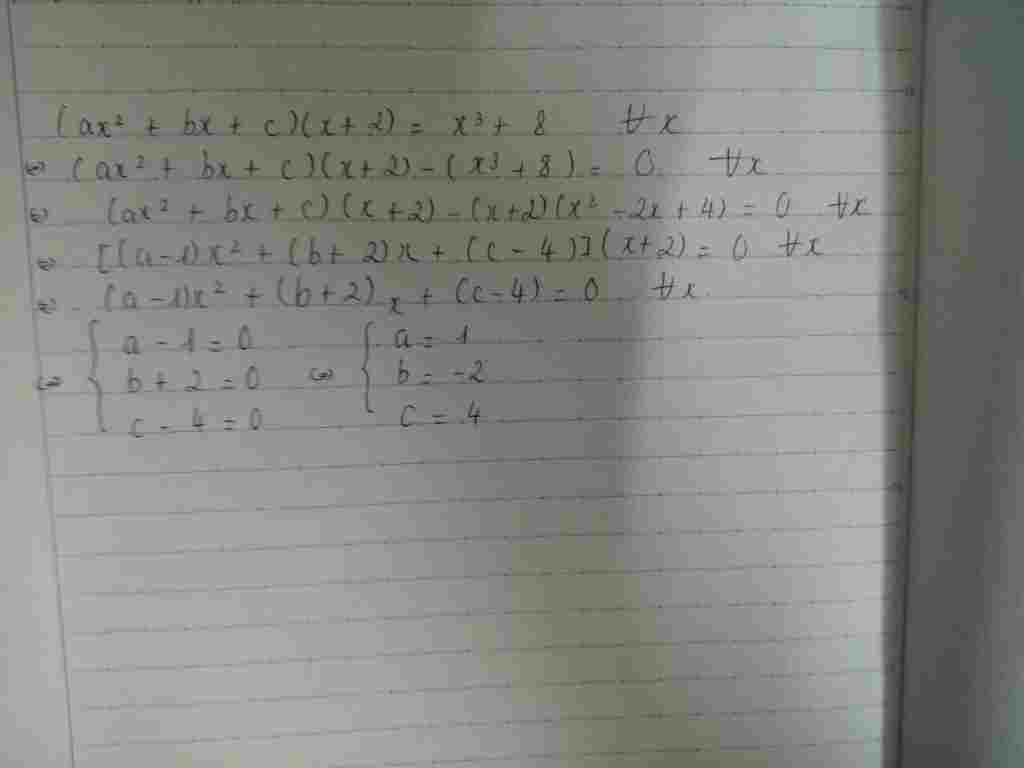 (ax² + bx + c)(x+2) = x³ + 8 ∀x
⇔ (ax² + bx + c)(x+2) - (x³ + 8) = 0 ∀x
⇔ (ax² + bx + c)(x+2) - (x+2)(x² - 2x + 4) = 0 ∀x
⇔ [(a-1)x² + (b+2)x + (c-4)](x+2) = 0 ∀x
⇔ (a-1)x² + (b+2)x + (c-4) = 0 ∀x
⇔ { a - 1 = 0 ⇔ { a = 1
b + 2 = 0 b = -2
c - 4 = 0 c = 4